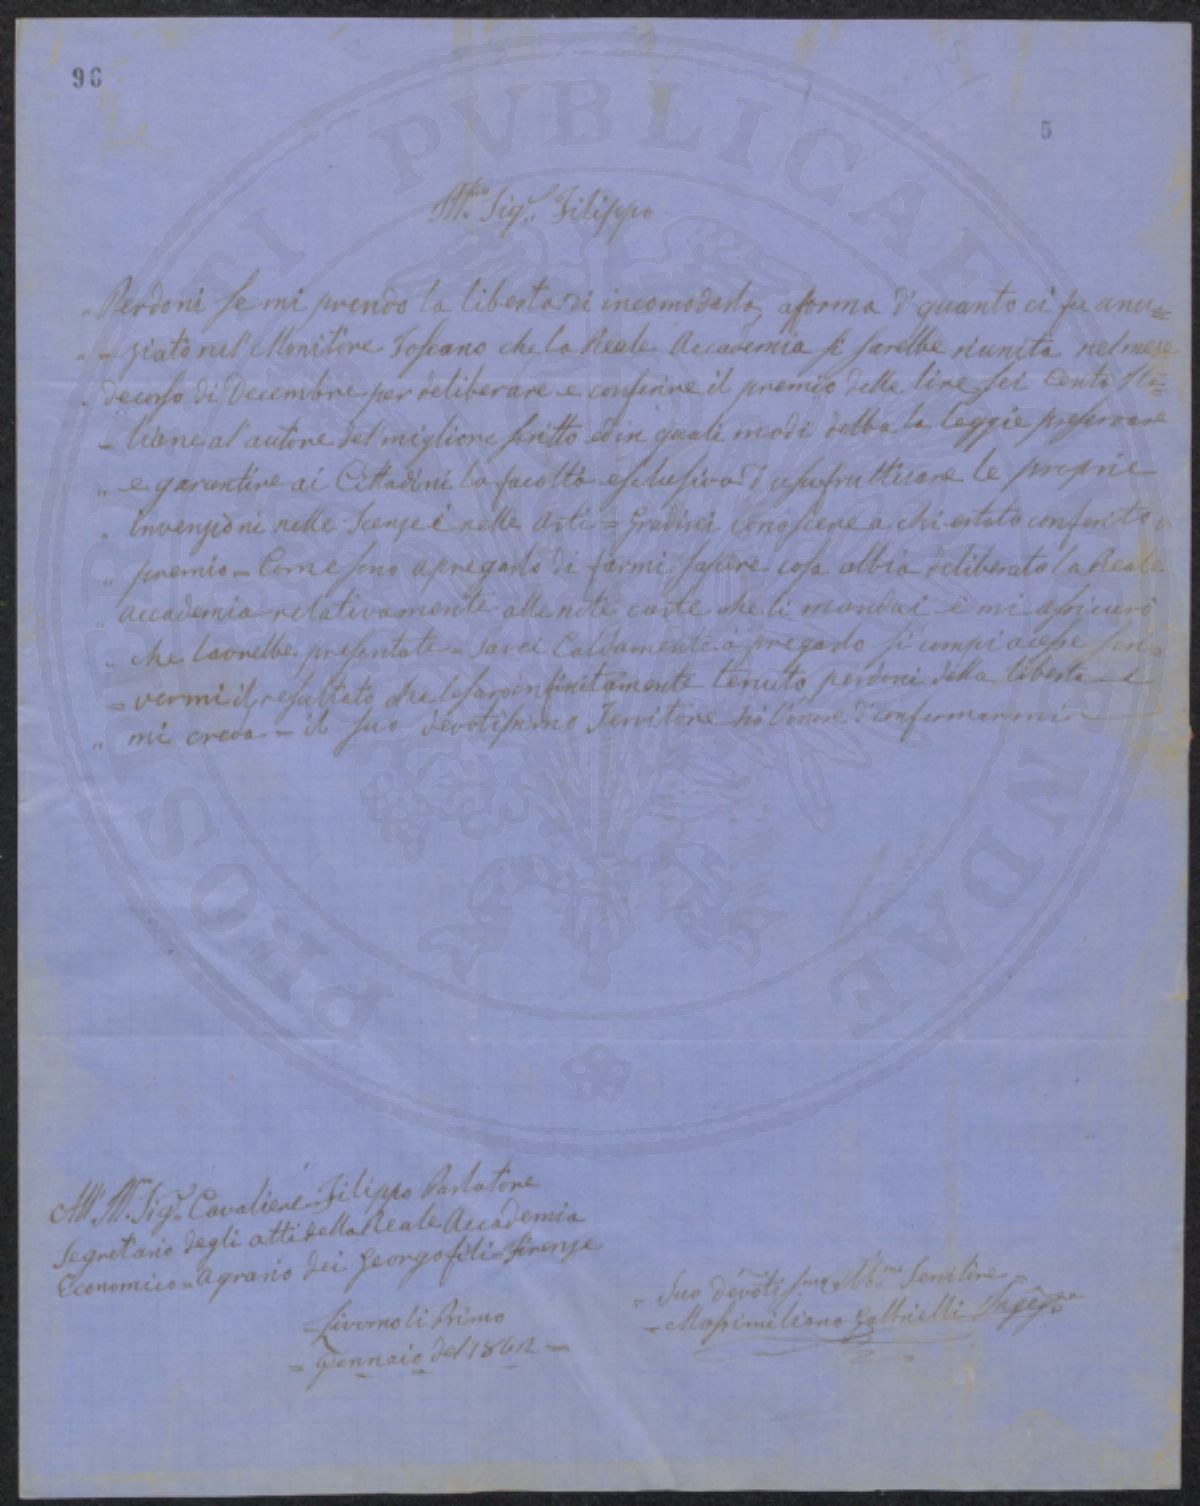 96
5
Ill.mo Sig.r Filippo
Perdoni se mi prendo la libertà di incomodarla, afforma d' quanto ci fu anu=
=ziato nel' Monitore Toscano che la Reale Accademia si sarebbe riunita nel mese
decorso di Decembre per deliberare e conferire il premio delle lire sei Cento Ita=
=liane al' autore del' migliore scritto ed in quali modi debba la leggie preservare
e garantire ai Cittadini la facoltà esclusiva d' usufrutticare le proprie
invenzioni nelle Scenze è nelle Arti = Gradirei Conoscere a chi estato conferito
premio = Come sono a pregarlo di farmi sapere cosa abbia deliberato la Reale
accademia relativamente alle note carte che li mandai e mi assicurò
che lavrebbe presentate = Sarei Caldamente à pregarlo si compiacesse scri=
=vermi il resultato che le sarò infinitamente tenuto perdoni della libertà e
mi creda = il suo devotissimo Servitore hò l'onore d'confermarmi
All' Ill. Sig.r Cavaliere Filippo Parlatore
Segretario degli atti della Reale Accademia
Economico = Agrario dei Georgofili = Firenze
Livorno li Primo
= Gennaio del 1862 =
= Suo devotis.mo Obb.mo Servitore
= Massimiliano Gabbrielli Ingeg.re
PROSPERITATI PVBLICAE AVGENDAE